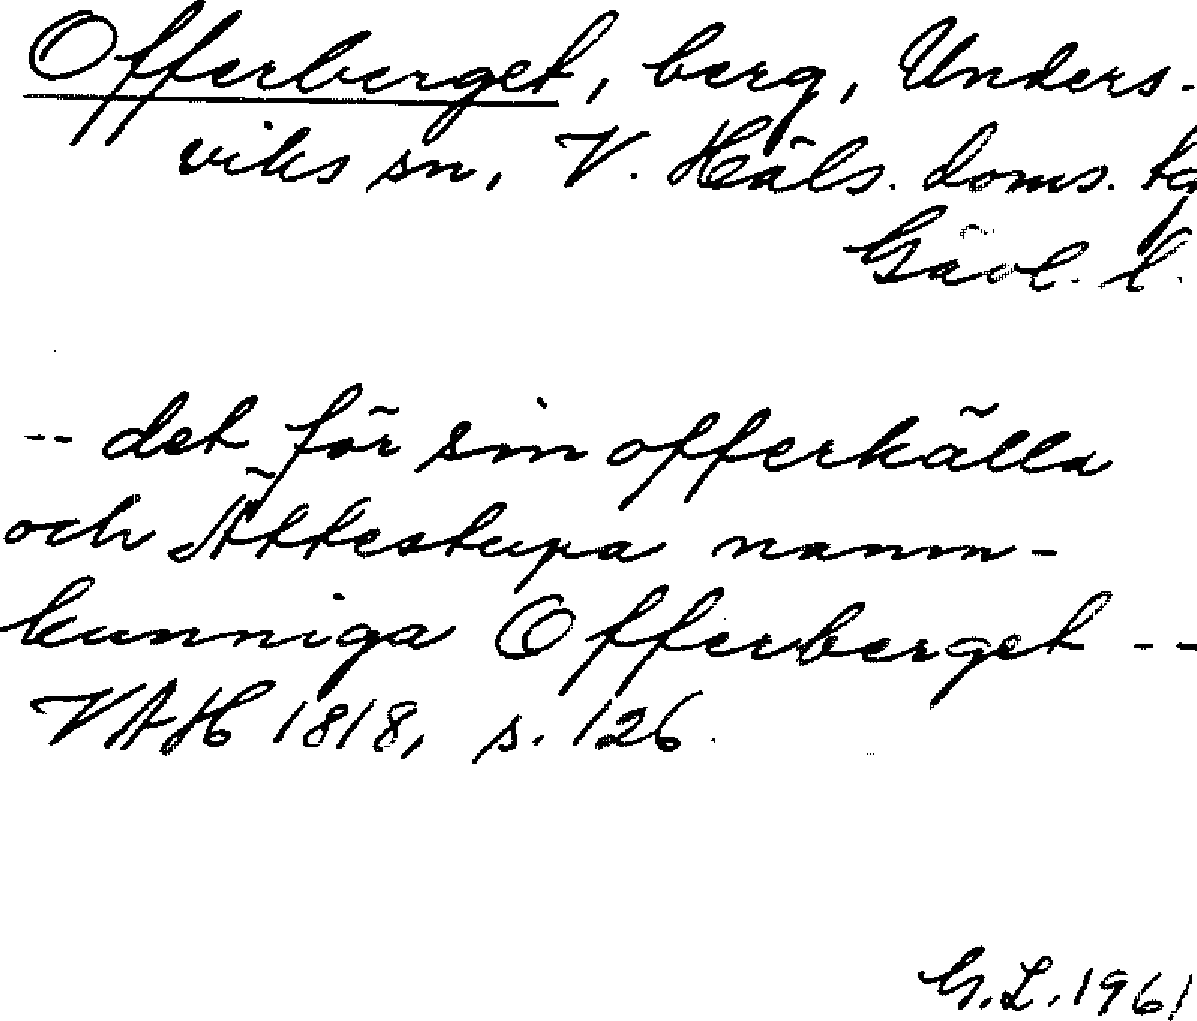 Offerberget, berg, Unders-
viks sn, V. Häls. doms. tg
Gävl. l.
-- det för sin offerkälla
och Ättestupa namn-
kunniga Offerberget --
VAH 1818, s. 126.
G.L. 1961